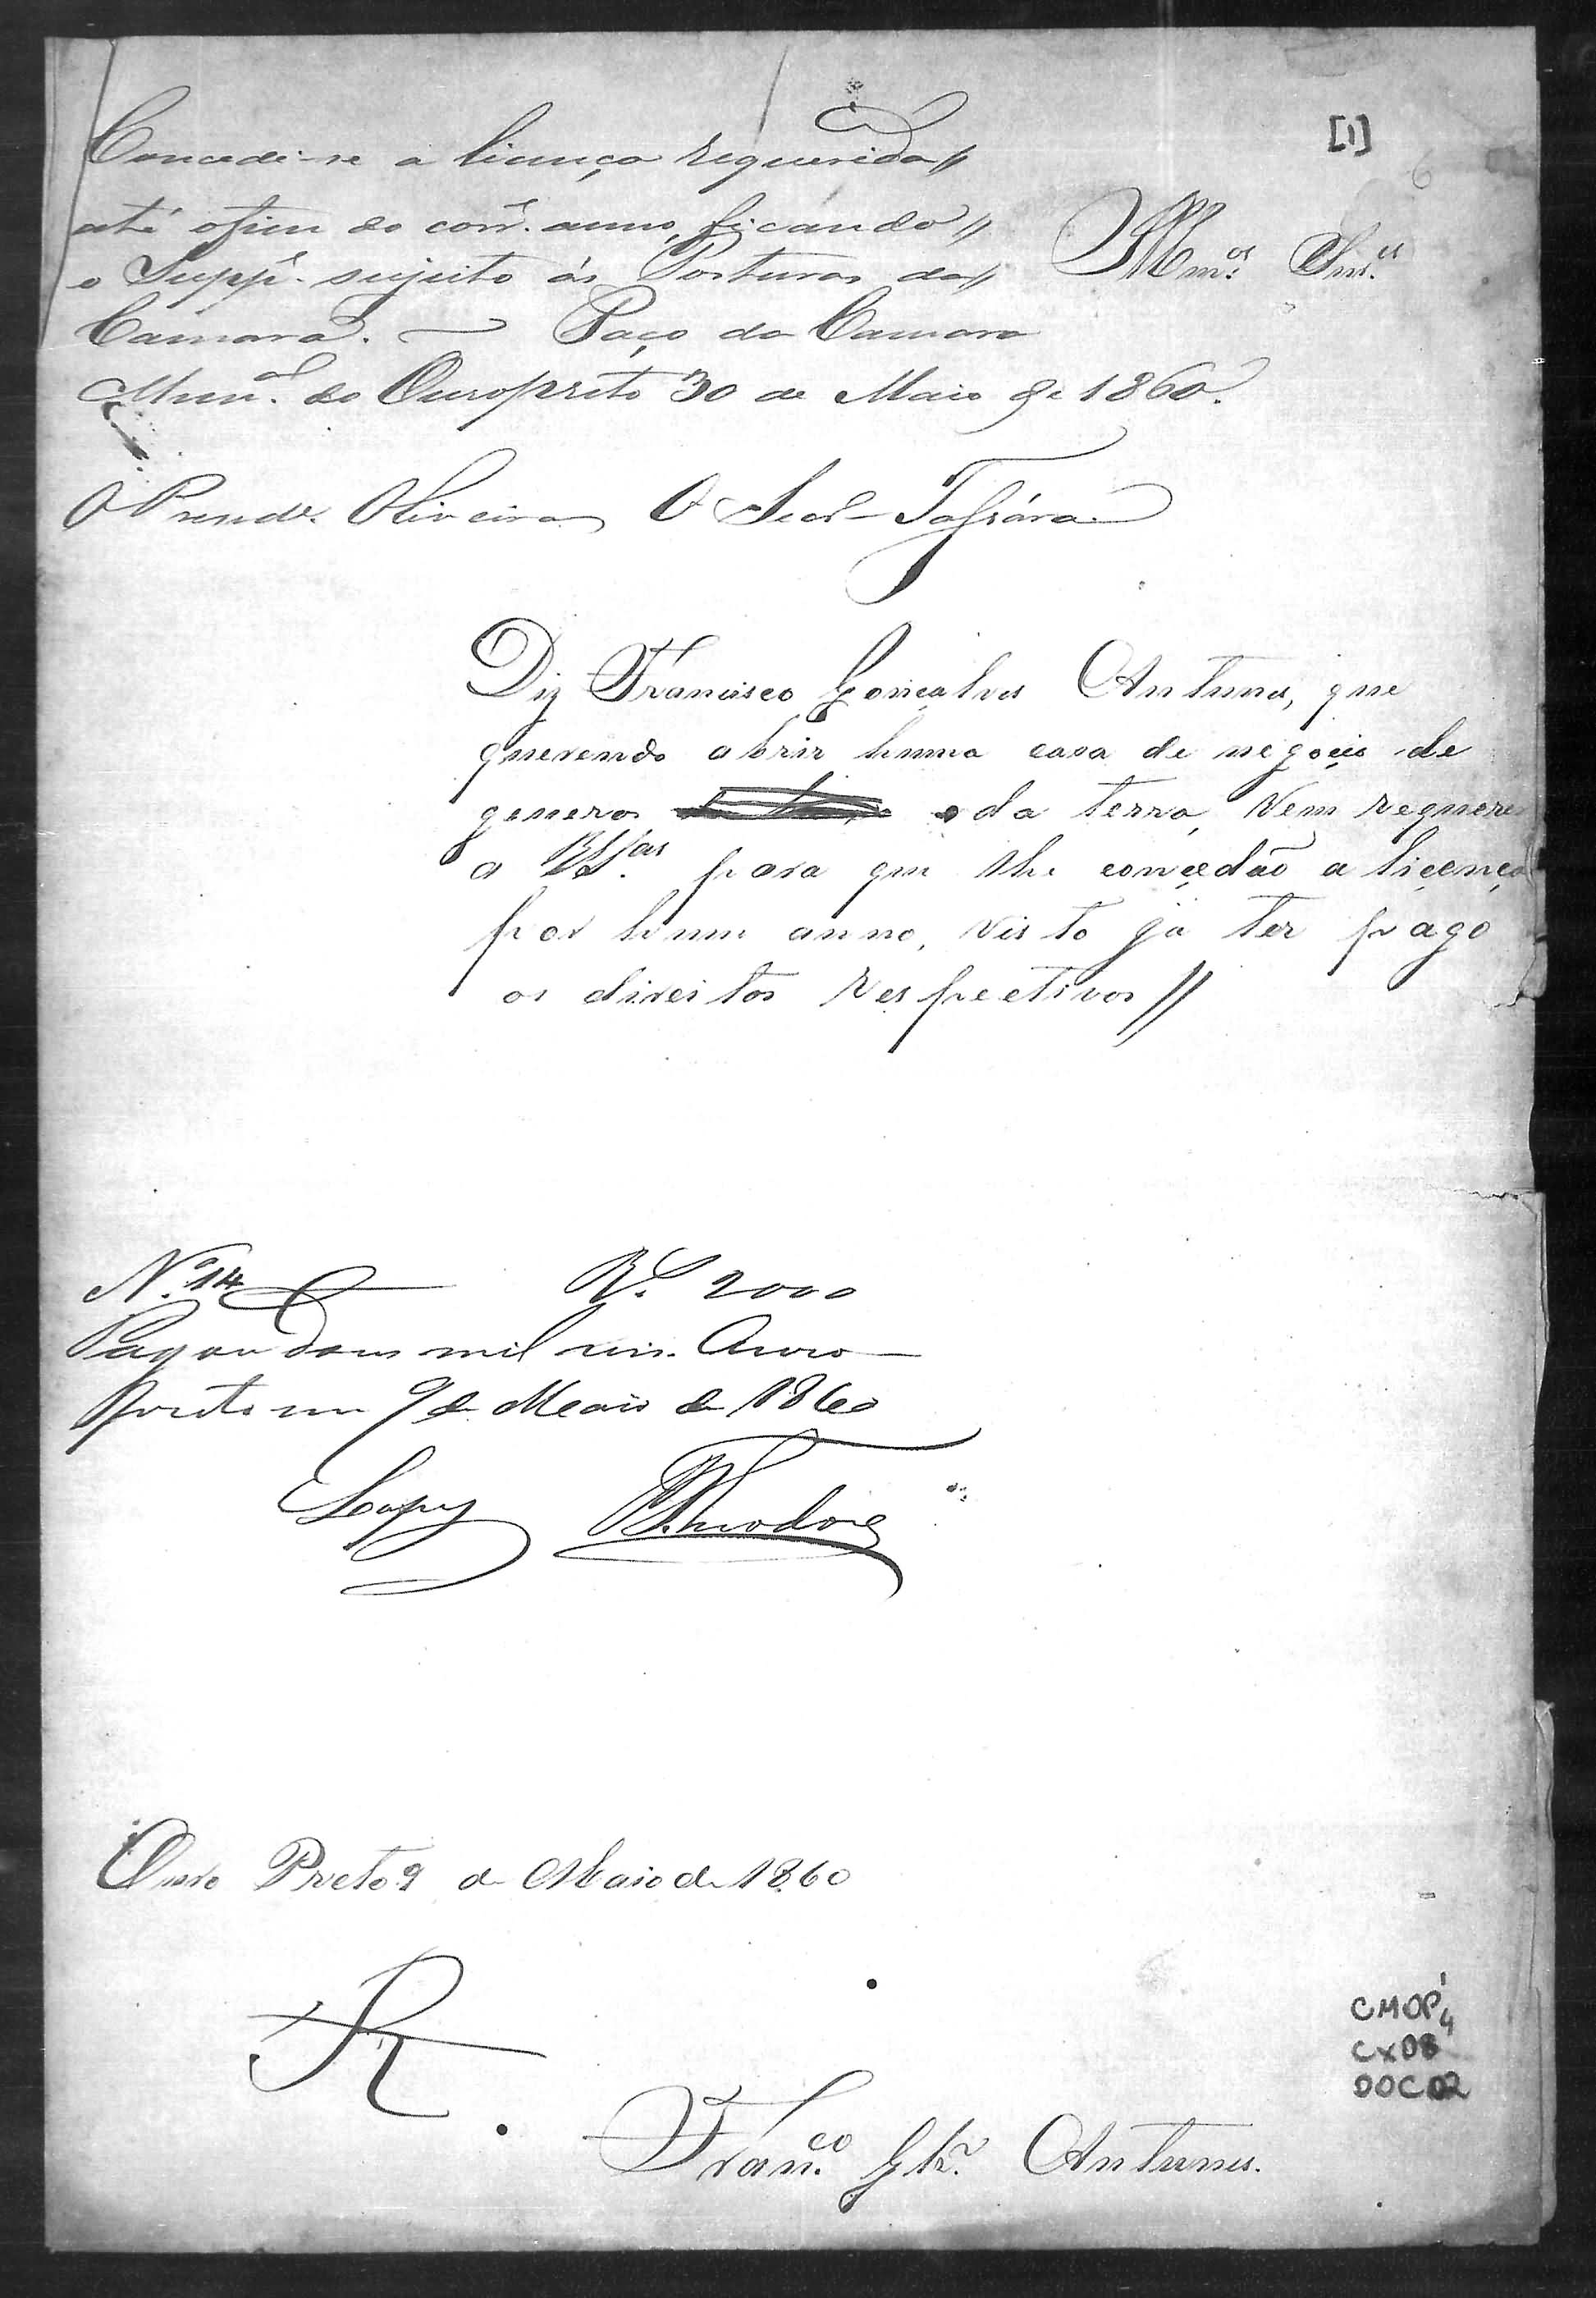 [1]
6
Concede-se a licença requerida //
até o fim do corr.e anno, ficando //
o Supp.e sujeito ás Posturas da //
Camara. — Paço da Camara
Mun.al do Ouropreto 30 de Maio de 1860.
Illm.os Snr.es
O Presid.e Oliveira O Secr.
Diz Francisco Gonçalves Antunes, que
querendo abrir huma casa de negocio de
generos da terra, vem requerer
a VS.as para que lhe concedão a licença
por hum anno, visto já ter pago
os direitos respectivos //
N.º 14 Rs. 2000
Pagou dous mil reis. Ouro
preto em 9 de Maio de 1860
Lopes Theodoro
Ouro Preto 9 de Maio de 1860
R
Fran.co Glz. Antunes.
CMOP
Cx 08
DOC 02